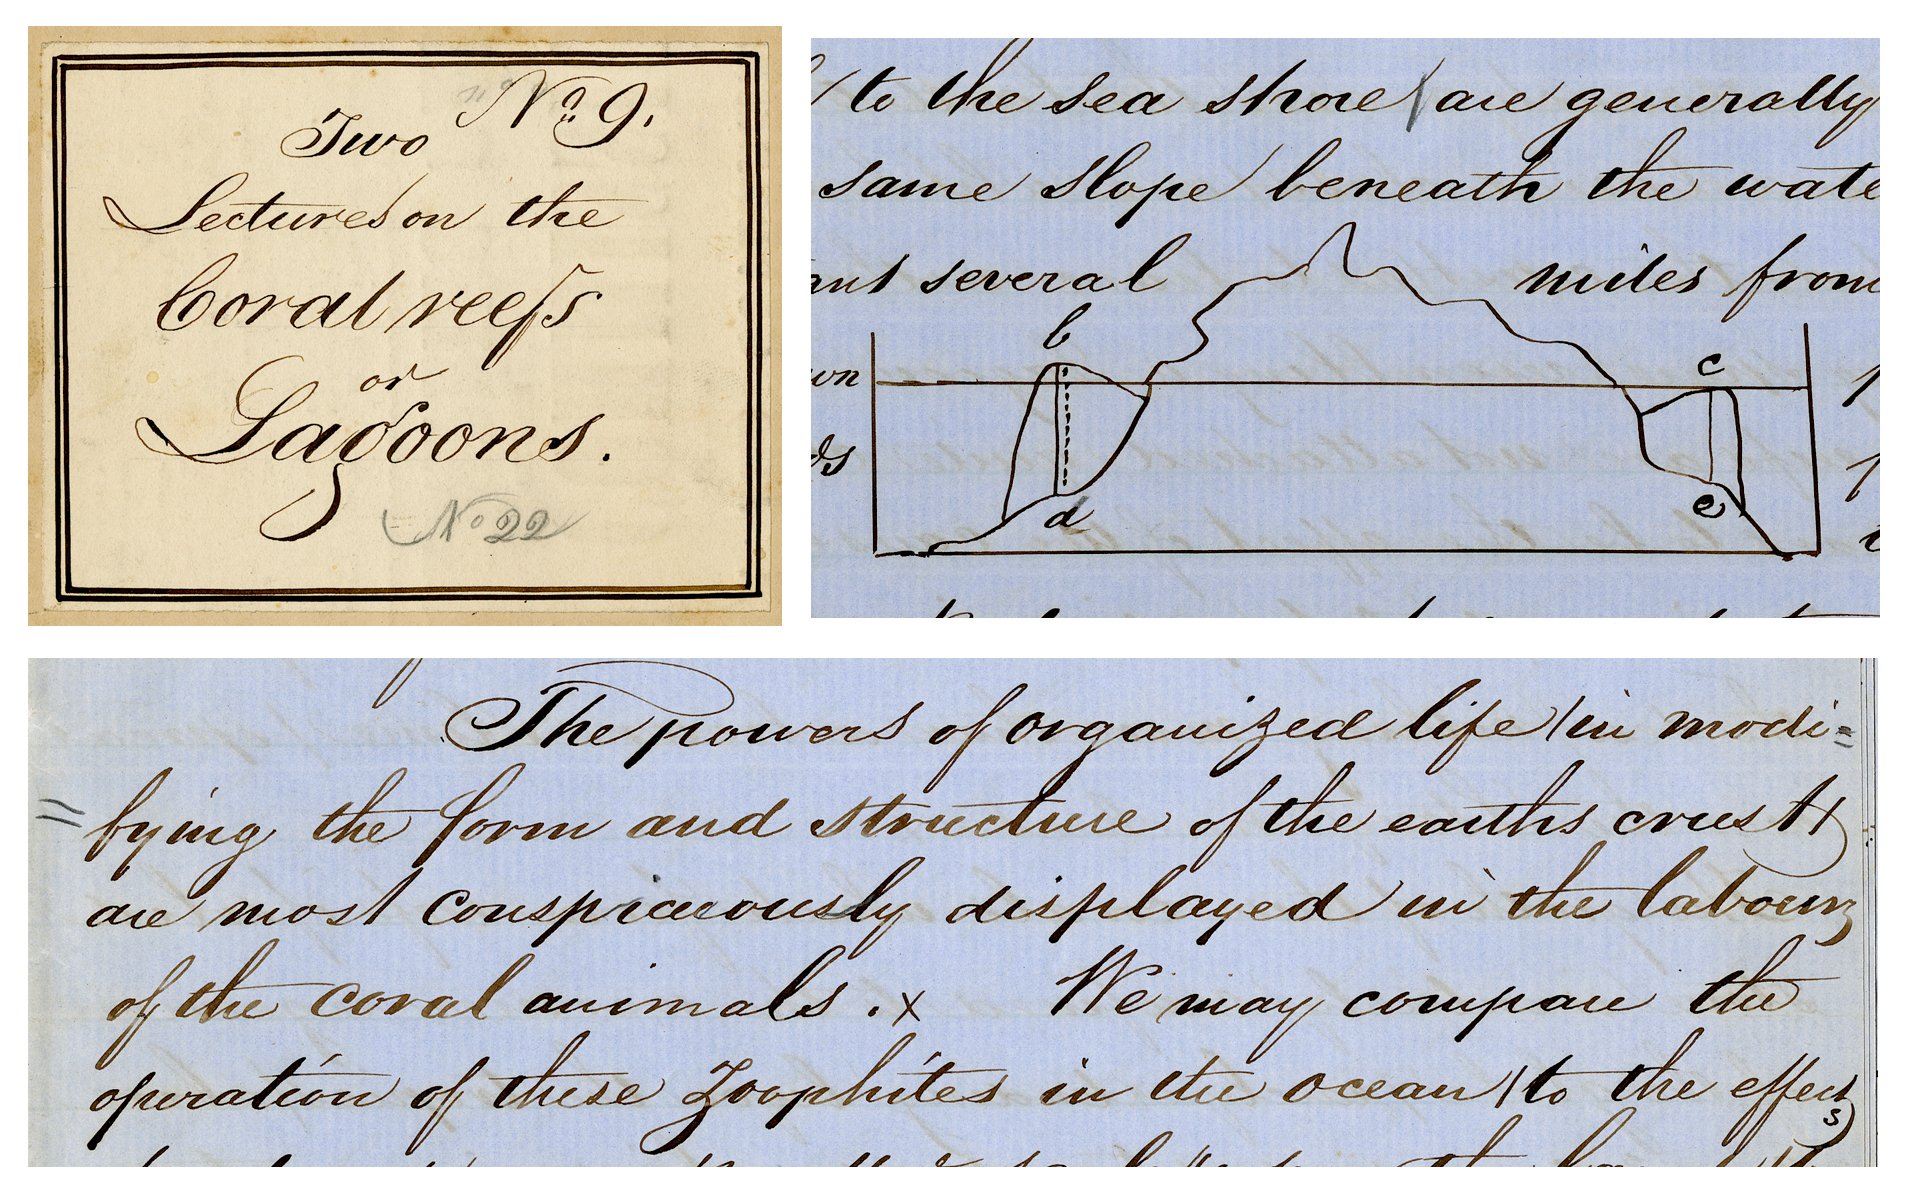 No 9.
Two
Lectures on the
Coral reefs
or
Lagoons.
No 22
to the sea shore / are generally
same slope / beneath the wate
several miles from
b
c
d
e
The powers of organized life / in modi=
fying the form and structure of the earths crust /
are most conspicuously displayed in the labours
of the coral animals . x We may compare the
operation of these Zoophites in the ocean / to the effects